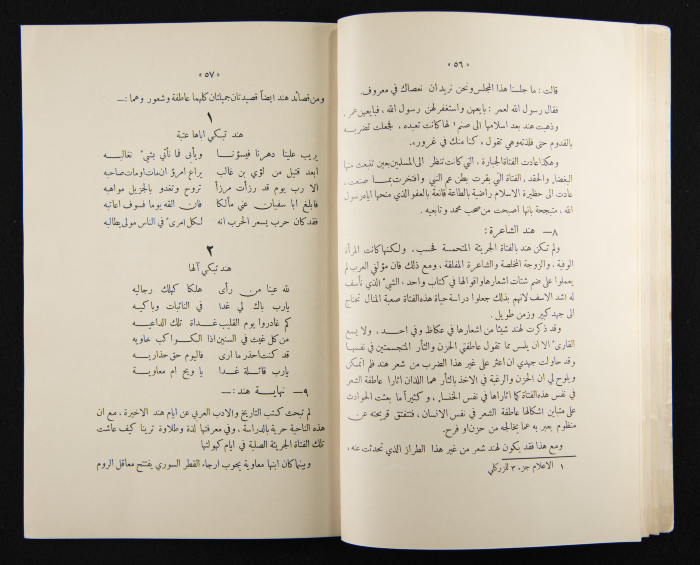 «٥٦»
قالت : ما جلسنا هذا المجلس ونحن نريد ان نعصاك في معروف .
فقال رسول الله لعمر : بايعهن واستغفر لهن رسول الله ، فبايعهن عمر .
وذهبت هند بعد اسلامها الى صنم ١ لها كانت تعبده ، فجعلت تضربه
بالقدوم حتى فلذته وهي تقول « كنا منك في غرور » .
وهكذا عادت الفتاة الجبارة ، التي كانت تنظر الى المسلمين بعين تنبعث منها
البغضاء والحقد ، الفتاة التي بقرت بطن عم النبي وافتخرت بمـا صنعت ،
عادت الى حظيرة الاسلام راضية بالطاعة قانعة بالعفو الذي منحها اياه رسول
الله ، متبججة بانها اصبحت من صحب محمد وتابعيه .
٨ – هند الشاعرة :
ولم تكن هند بالفتاة الجريئة المتحمسة فحسب ، ولكنها كانت المرأة
الوفية ، والزوجة المخلصة والشاعرة المفلقة ، ومع ذلك فان مؤلفي العرب لم
يعملوا على ضم شتات اشعارها واقوالها في كتاب واحد ، الشيء الذي نأسف
له اشد الاسف لانهم بذلك جعلوا دراسة حياة هذه الفتاة صعبة المنال تحتاج
الى جهد كبير وزمن طويل .
وقد ذكرت لهند شيئا من اشعارها في عكاظ وفي احـد ، ولا يسع
القارىء الا ان يلمس مما تقول عاطفتي الحزن والثأر المتجسمتين في نفسها
وقد حاولت جهدي ان اعثر على غير هذا الضرب من شعر هند فلم اتمكن
ويلوح لي ان الحزن والرغبة في الاخذ بالثأر هما اللذان اثارا عاطفة الشعر
في نفس هذه الفتاة كما اثاراها في نفس الخنساء ، وكثيرا ما بعثت الحوادث
على متباين اشكالها عاطفة الشعر في نفس الانسان ، فتتفتق قريحته عن
منظوم يعبر به عما يخالجه من حزن او فرح .
ومع هذا فقد يكون لهند شعر من غير هذا الطراز الذي تحدثت عنه ،
١ الاعلام جزء ٣ للزركلي
«٥٧»
ومن قصائد هند ايضاً قصيدتان جميلتان كلهما عاطفة وشعور وهما :ـ
١
هند تبكي اباها عتبة
يريب علينا دهرنا فيسؤنـا ويأبى فما نأتي بشيء نغالبـه
ابعد قتيل من لؤي بن غالب يراع امرؤ ان مات او مات صاحبه
الا رب يوم قد رزأت مرزأ تروح وتغدو بالجزيل مواهبه
فابلغ ابا سفيان عني مألكا فان القه يوما فسوف اعاتبه
فقد كان حرب يسعر الحرب انه لكل امرىء في الناس مولى يطالبه
٢
هند تبكي آلها
لله عينا من رأى هلكا كهلك رجاليه
يارب باك لي غدا في النائبات وباكيـه
كم غادروا يوم القليب غـداة تلك الداعيـه
من كل غيث في السنين اذا الكـواكب خاويه
قد كنت احذر ما ارى فاليوم حق حذاريـه
يارب قائـلة غـدا يا ويح ام معاويـة
٩ – نهايـة هند :ـ
لم تبحث كتب التاريخ والادب العربي عن ايام هند الاخيرة ، مع ان
هذه الناحية حرية بالدراسة ، وفي معرفتها لذة وطلاوة ترينا كيف عاشت
تلك الفتاة الجريئة الصلبة في ايام كهولتها
وبينما كان ابنها معاوية يجوب ارجاء القطر السوري يفتتح معاقل الروم